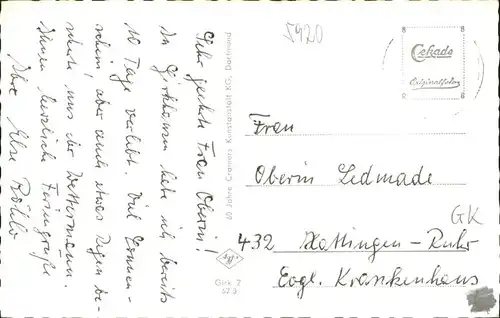 Sehr geehrte Frau Oberin!
In Girkhausen habe ich bereits
10 Tage verlebt. Viel Sonnen-
schein, aber auch etwas Regen be-
scherte uns der Wettermann.
Ihnen herzliche Feriengrüße
Ihre Else
60 Jahre Cramers Kunstanstalt KG, Dortmund
Girk 7
5920
Cekade
Originalfoto
Frau
Oberin Ledmade
432 Hattingen-Ruhr
Evgl. Krankenhaus
GK